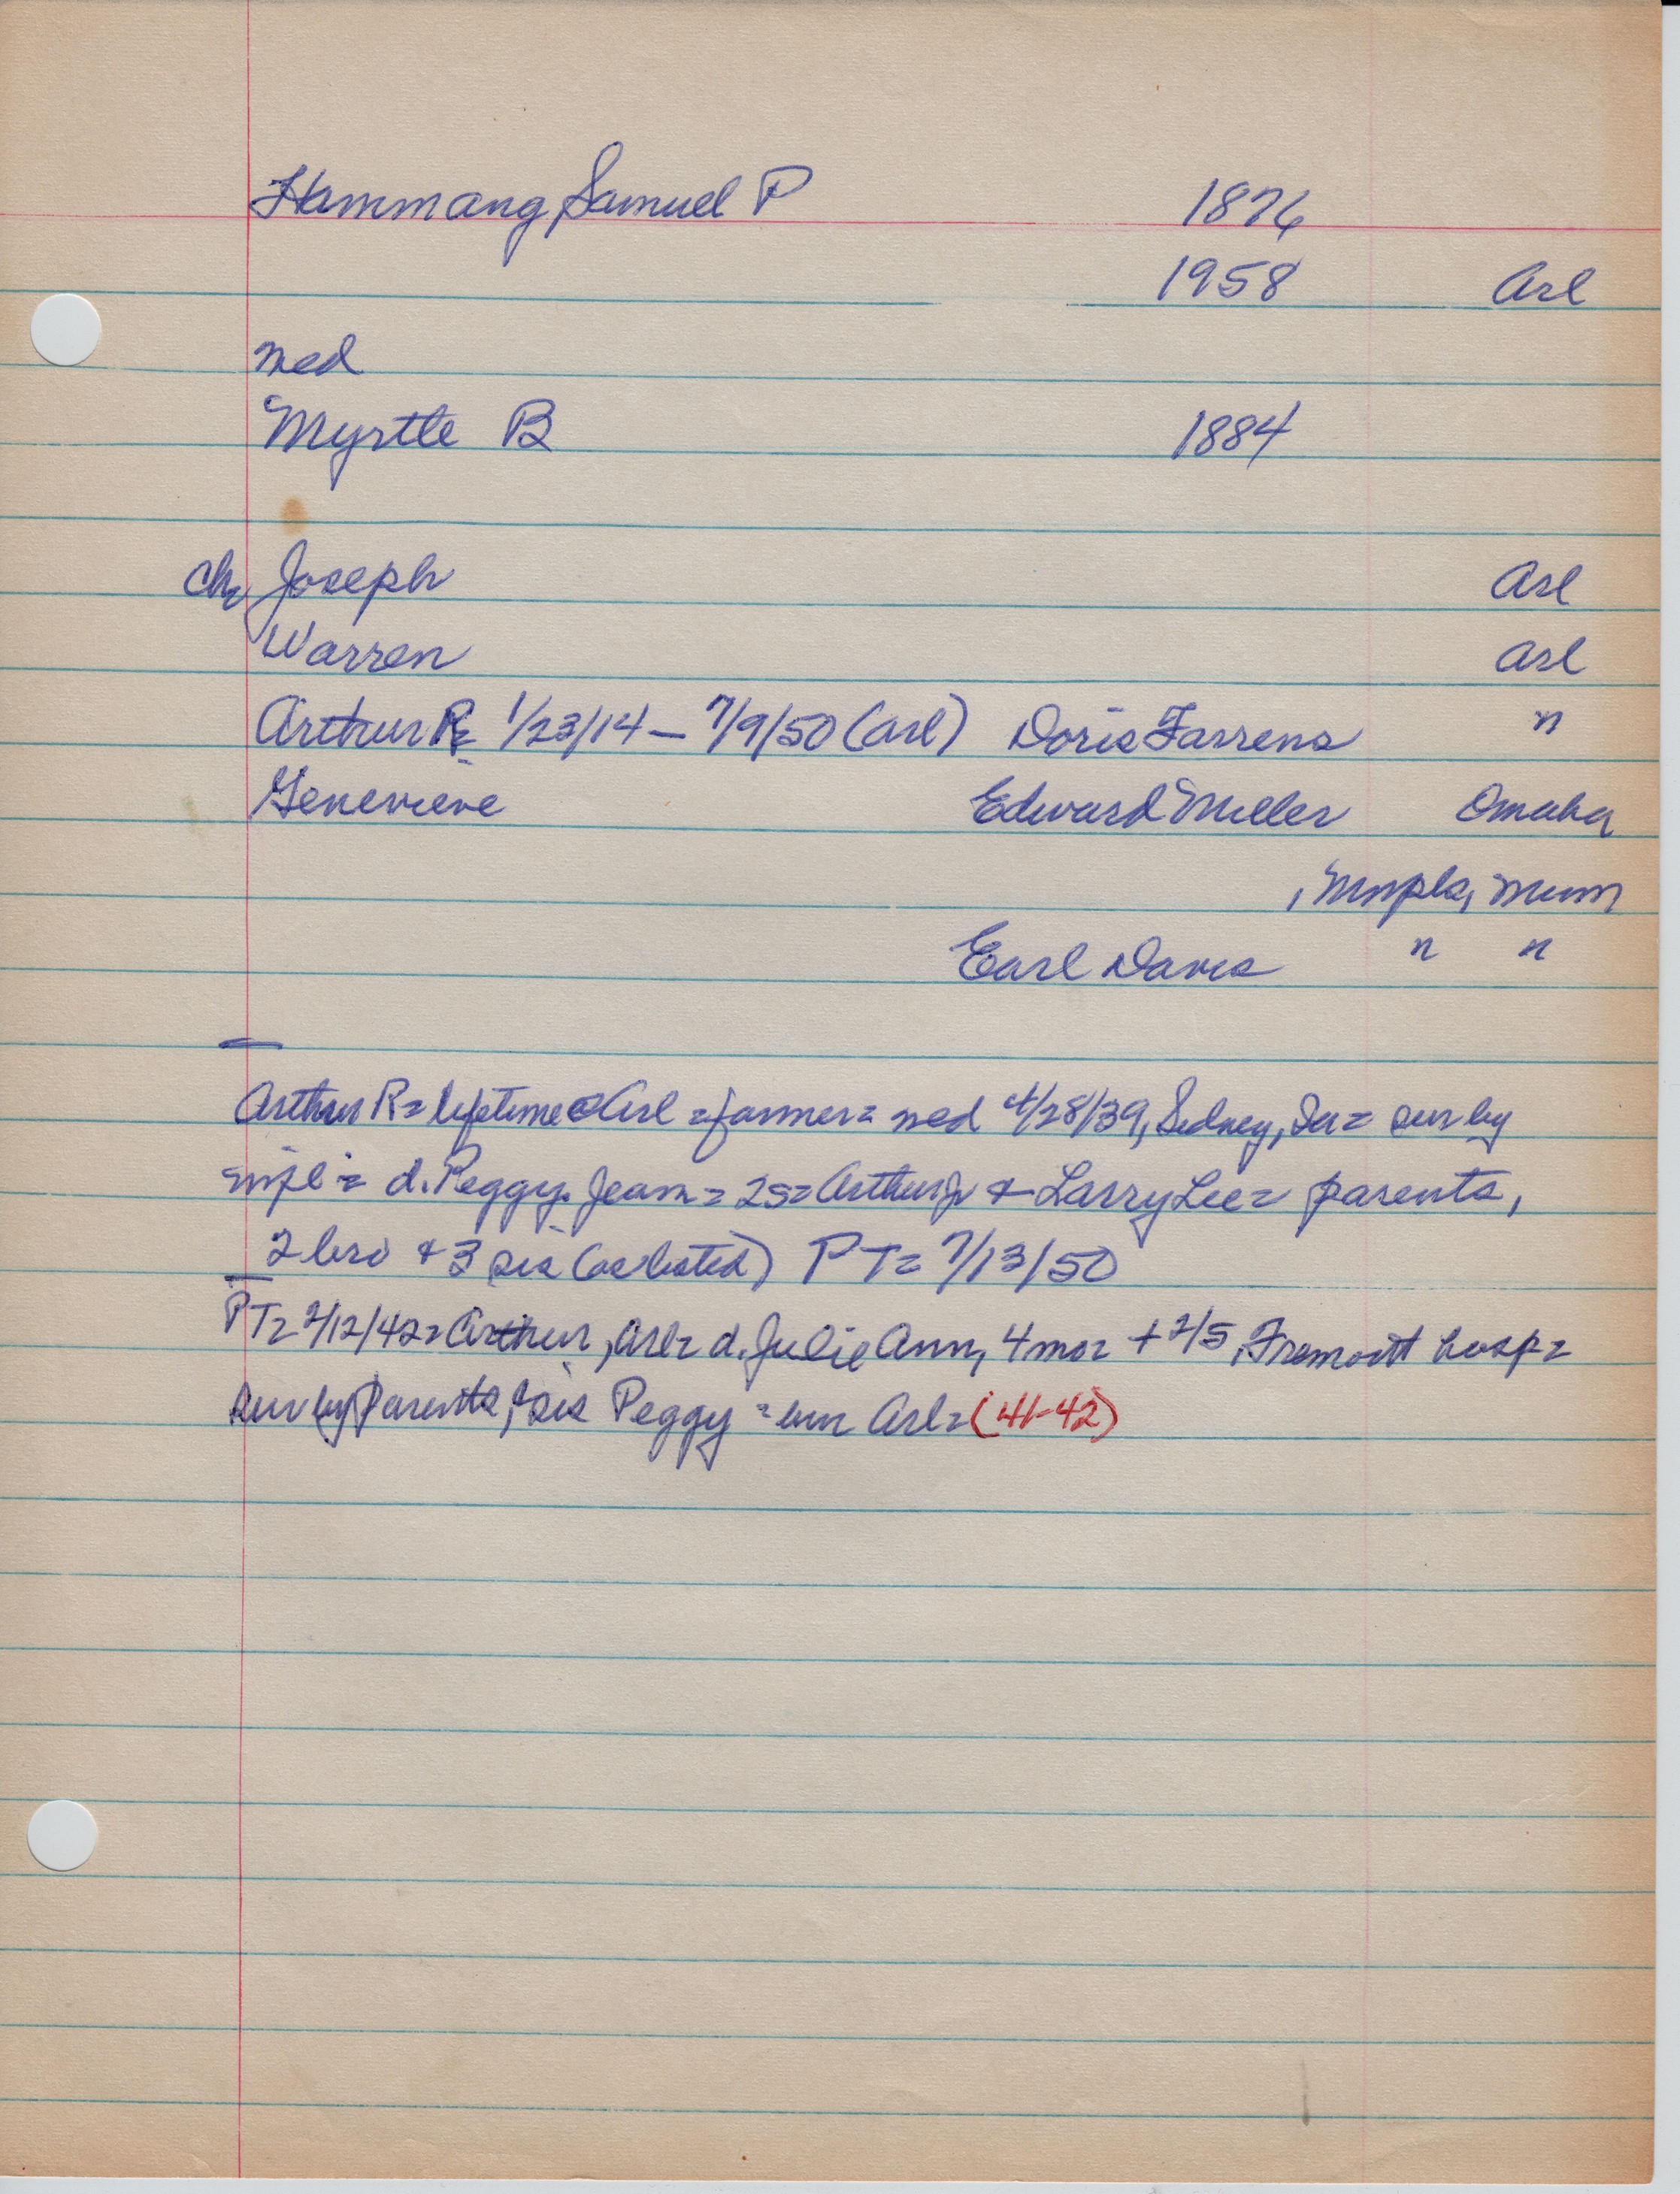 Hammang, Samuel P 1876
1958 Arl
med
Myrtle B 1884
ch Joseph Arl
Warren Arl
Arthur R= 1/23/14 – 7/9/50 (Arl) Doris Farrens "
Genevieve Edward Miller Omaha
, Mnpls, Minn
Earl Davis " "
Arthur R= lifetime @ Arl = farmer = med 4/28/39, Sidney, Ia = sur by
wife = d. Peggy Jean = 2s = Arthur Jr & Larry Lee = parents,
2 bro & 3 sis (as listed) PT= 7/13/50
PT= 2/12/42= Arthur, Arl= d. Julie Ann, 4 mo= + 2/5, Fremont hosp=
sur by Parents, & sis Peggy = bur Arl= (41-42)